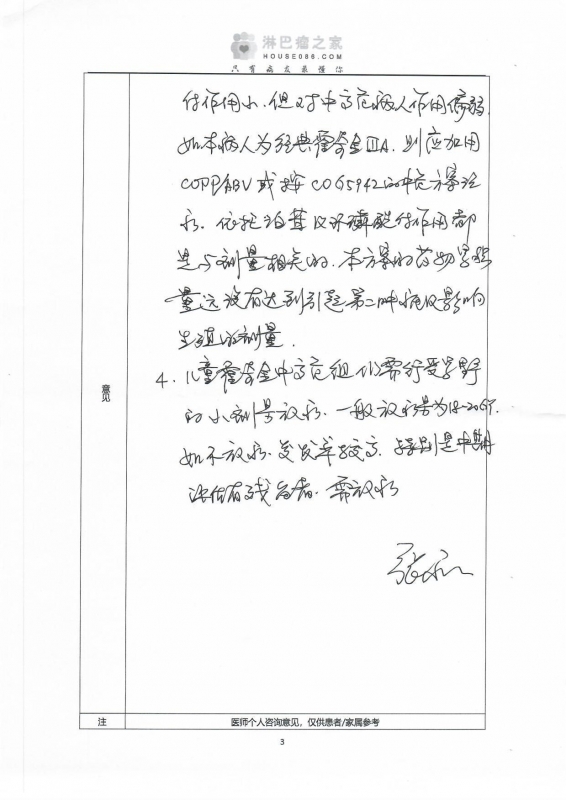 淋巴瘤之家
HOUSE086.COM
只有病友最懂你
付作用小.但对中高危病人作用偏弱.
如本病人为经典霍奇金ⅢA.则应加用
COPP/ABV或按COG5942的中危方案治
疗.依托泊苷及环磷酰付作用都
是与剂量相关的.本方案的药物累积
量远没有达到引起第二肿瘤及影响
生殖的剂量.
4.儿童霍奇金中高危组仍需行受累野
的小剂量放疗.一般放疗量为18-20GY.
如不放疗.复发率较高.特别是中期
评估有残留者.需放疗
意见
注
医师个人咨询意见，仅供患者/家属参考
3